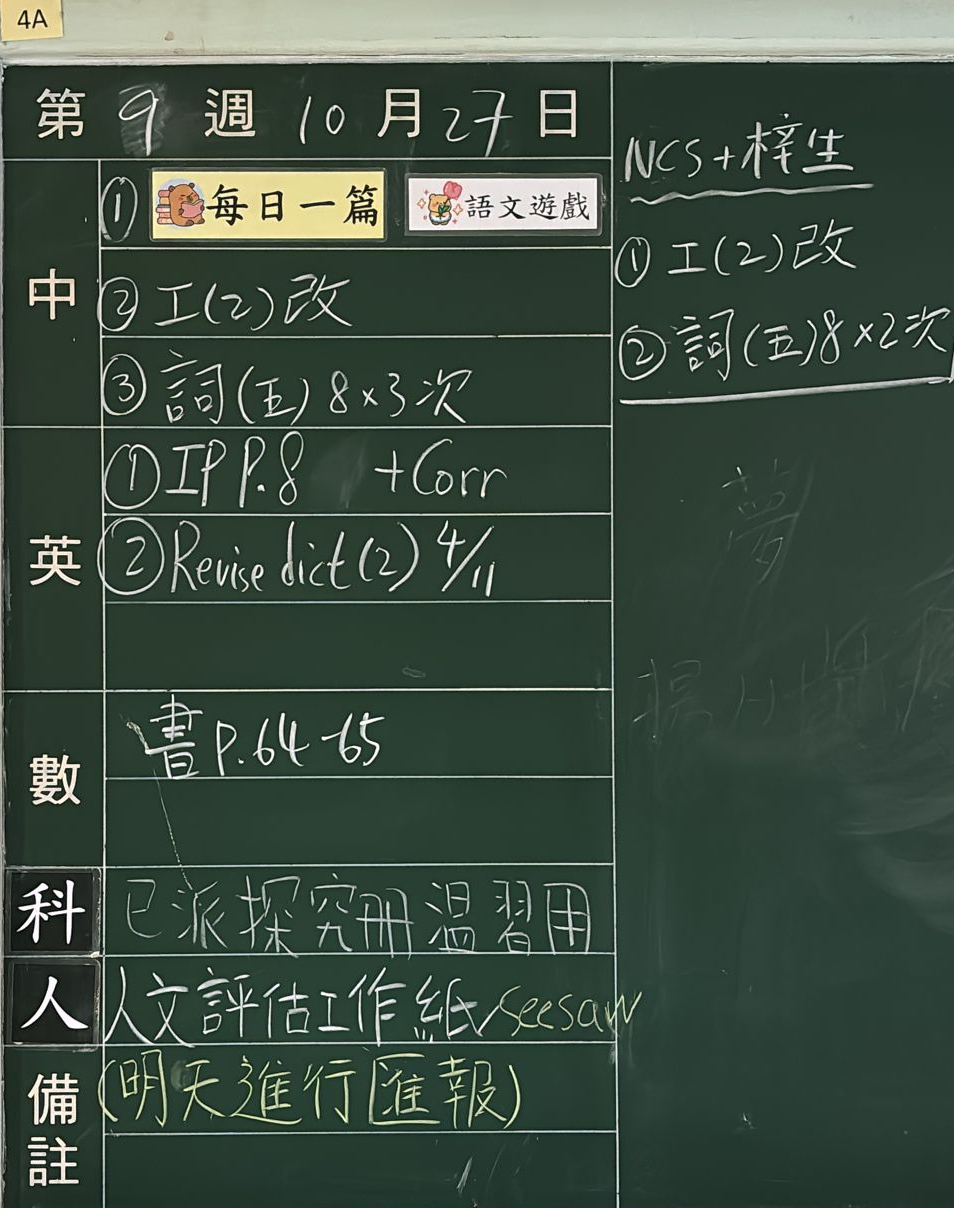 4A
第 9 週 10 月 27 日
中
① 每日一篇 語文遊戲
② 工(2)改
③ 詞(五) 8×3次
英
① IP P.8 +Corr
② Revise dict(2) 4/11
數
書 P.64-65
科
已派探究冊溫習用
人
人文評估工作紙/seesaw
備註
(明天進行匯報)
NCS+梓生
① 工(2)改
② 詞(五)8×2次